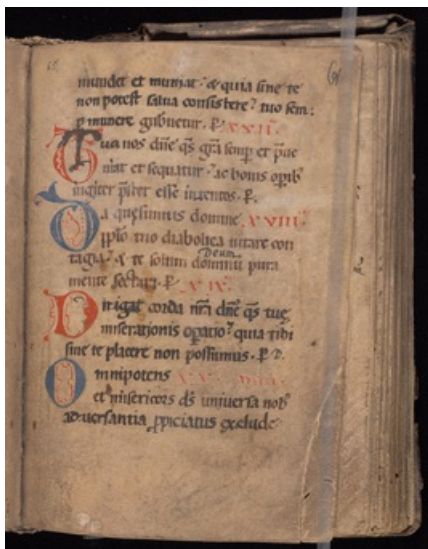 mundet et muniat · & quia sine te
non potest salua consistere? tuo sem:
p munere gubnetur · P· XVII.
Tua nos dñe qs grã semp et pue
niat et sequatur · ac bonis opib
iugiter pstet esse intentos · P·
Da quesumus domine XVIII
pplo tuo diabolica uitare con
tagia? & te solum dominũ pura
Deum
mente sectari · P· XIX.
Dirigat corda nrã dñe qs tue
miserationis opatio? quia tibi
sine te placere non possumus · P· D.
Omnipotens XX.
et misericors ds uniuersa nob
aduersantia ppiciatus exclude